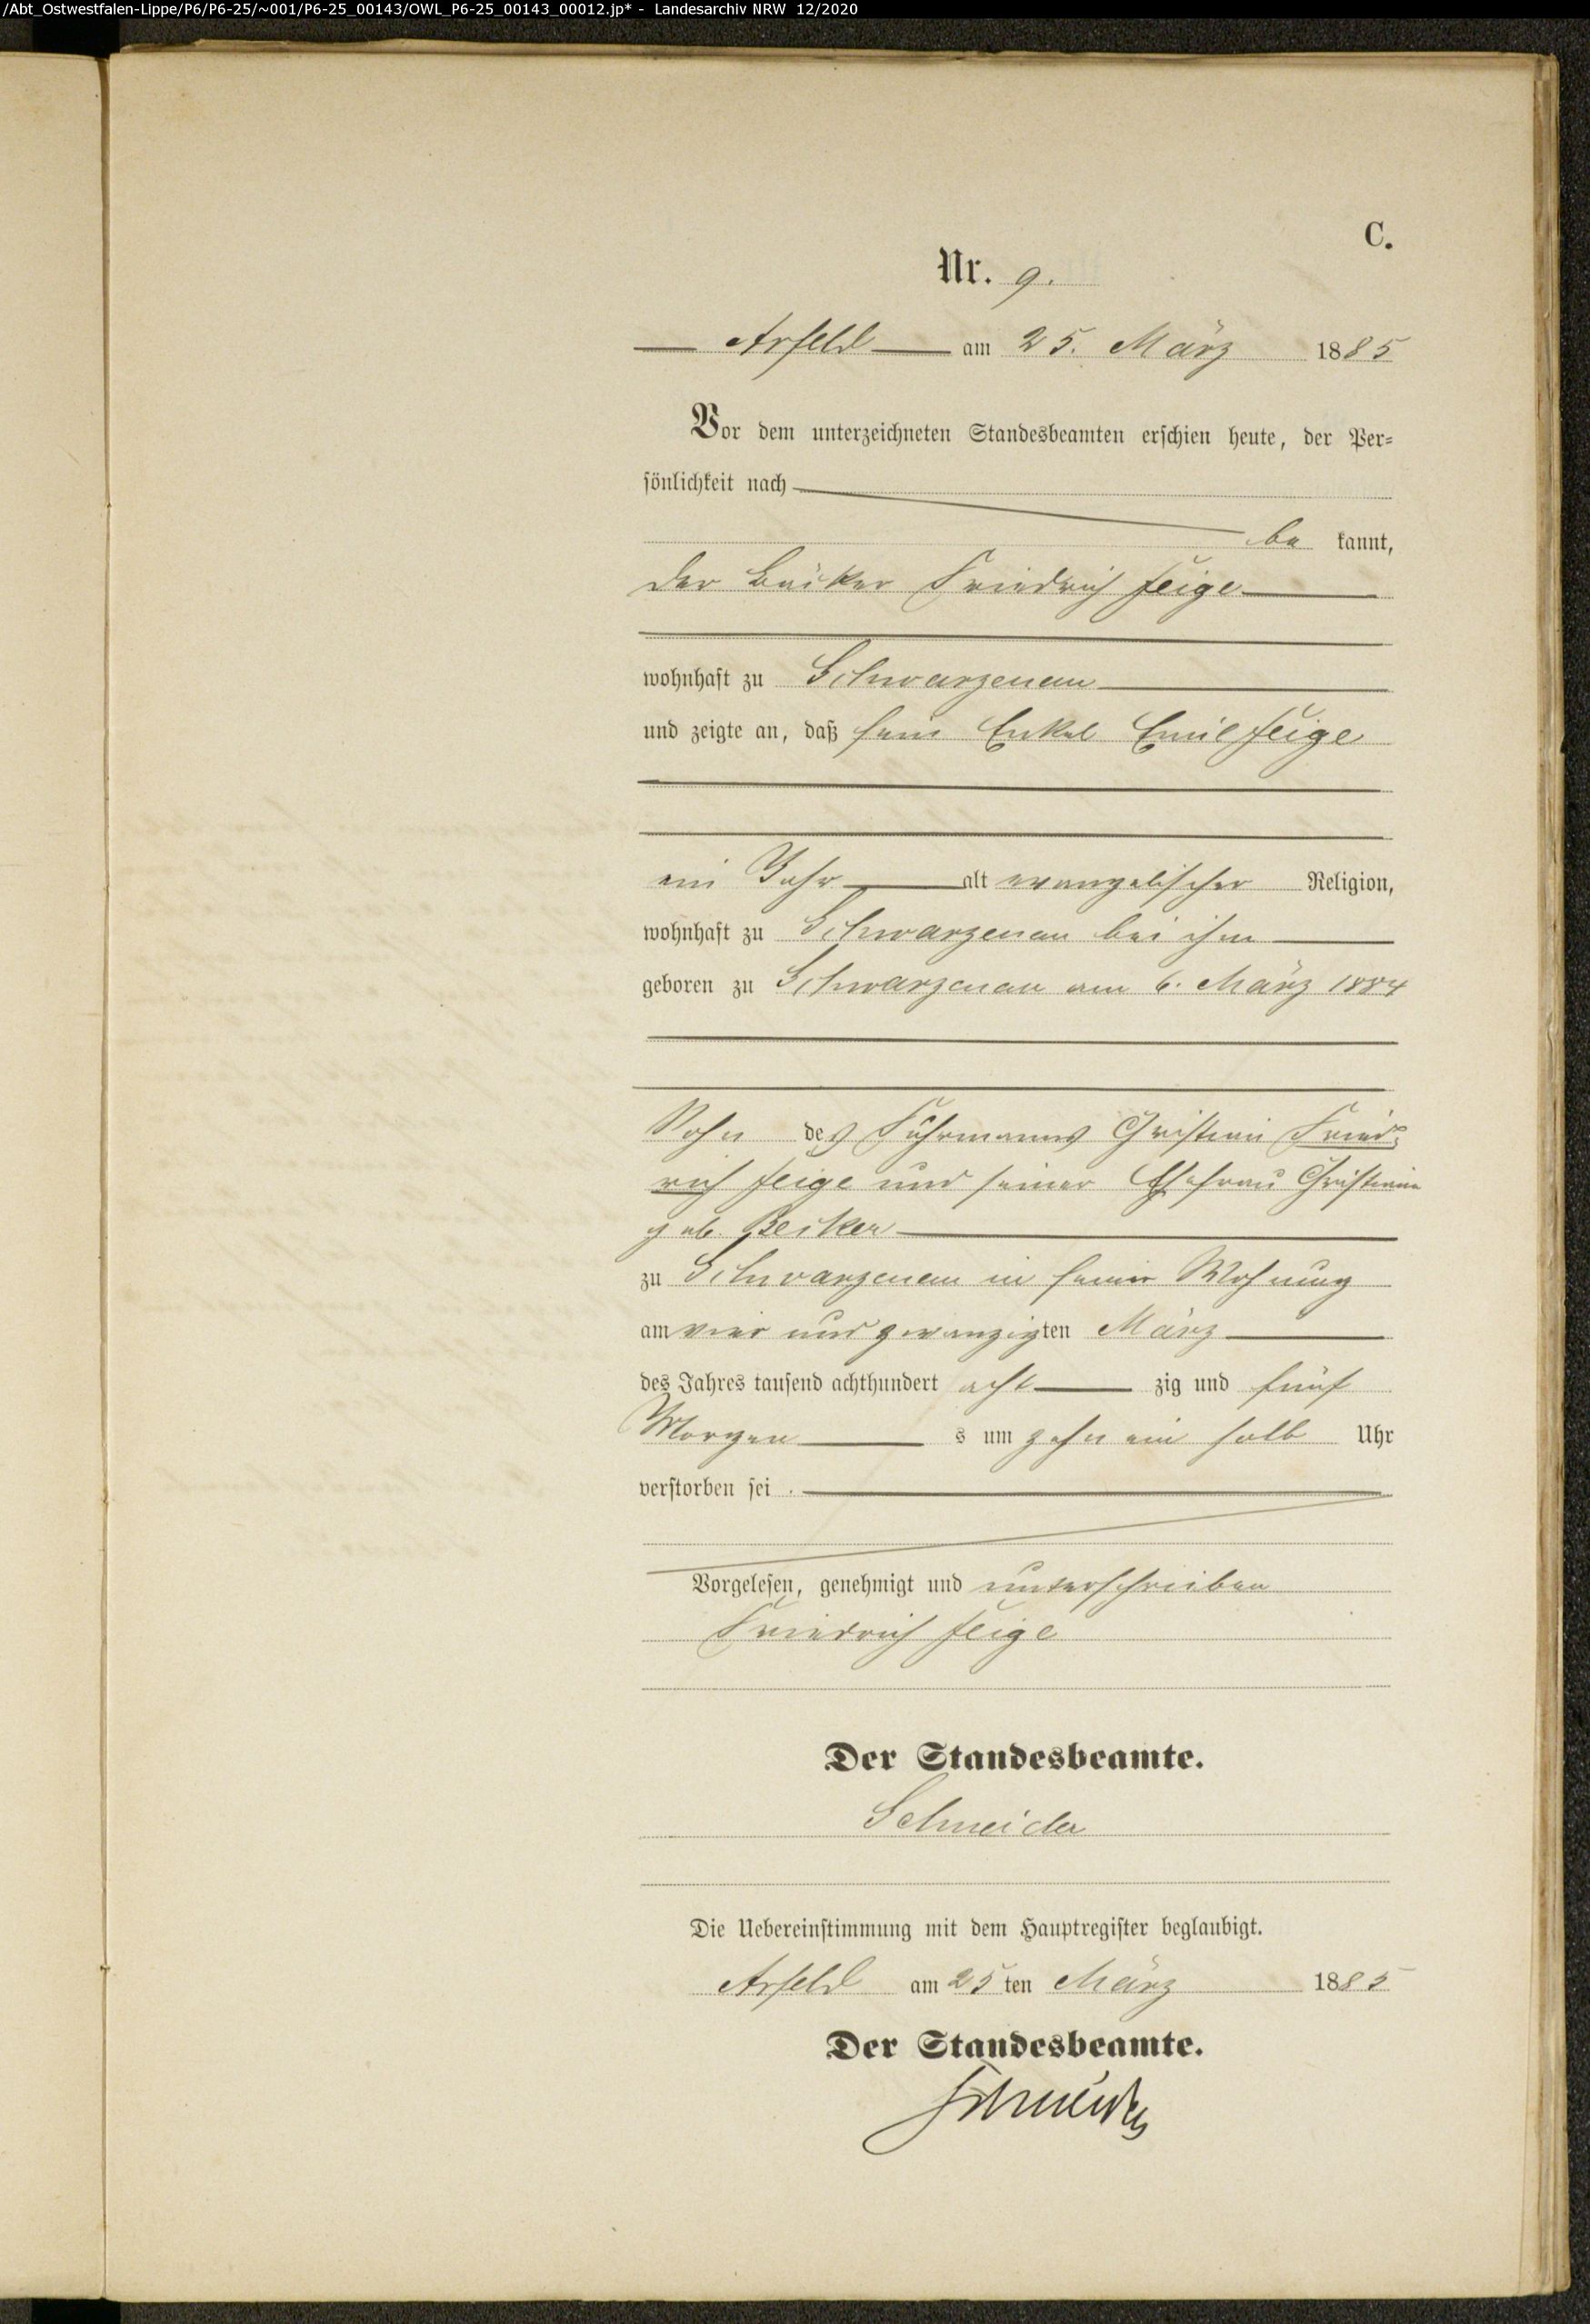 /Abt_Ostwestfalen-Lippe/P6/P6-25/~001/P6-25_00143/OWL_P6-25_00143_00012.jp* - Landesarchiv NRW 12/2020
C.
Nr. 9.
Arfeld am 25. März 1885
Vor dem unterzeichneten Standesbeamten erschien heute, der Per=
sönlichkeit nach
be kannt,
der Bäcker Friedrich Feige
wohnhaft zu Schwarzenau
und zeigte an, daß sein Enkel Emil Feige
ein Jahr alt evangelischer Religion,
wohnhaft zu Schwarzenau bei ihm
geboren zu Schwarzenau am 6. März 1884
Sohn des Fuhrmanns Christian Fried=
rich Feige und seiner Ehefrau Christiane
geb. Becker
zu Schwarzenau in seiner Wohnung
am vier und zwanzigten März
des Jahres tausend achthundert acht zig und fünf
Morgen s um zehn ein halb Uhr
verstorben sei.
Vorgelesen, genehmigt und unterschrieben
Friedrich Feige
Der Standesbeamte.
Schneider
Die Uebereinstimmung mit dem Hauptregister beglaubigt.
Arfeld am 25 ten März 1885
Der Standesbeamte.
Schneider